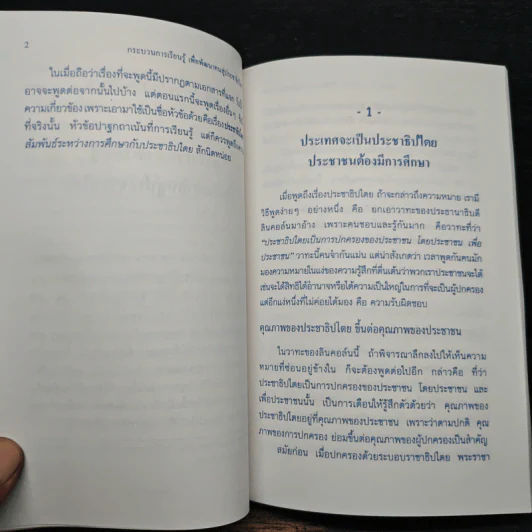 2
กระบวนการเรียนรู้ เพื่อพัฒนาคนสู่ประชาธิปไตย
ในเมื่อถือว่าเรื่องที่จะพูดนี้มีปรากฏตามเอกสารที่แจก
อาจจะพูดต่อจากนั้นไปบ้าง แต่ตอนแรกนี้จะพูดเรื่องอื่นๆ
ความเกี่ยวข้อง เพราะเอามาใช้เป็นชื่อหัวข้อด้วยคือเรื่อง
ที่จริงนั้น หัวข้อปาฐกถาเน้นที่การเรียนรู้ แต่ก็ควรพูดถึง
สัมพันธ์ระหว่างการศึกษากับประชาธิปไตย สักนิดหน่อย
- 1 -
ประเทศจะเป็นประชาธิปไตย
ประชาชนต้องมีการศึกษา
เมื่อพูดถึงเรื่องประชาธิปไตย ถ้าจะกล่าวถึงความหมาย เรามี
วิธีพูดง่ายๆ อย่างหนึ่ง คือ ยกเอาวาทะของประธานาธิบดี
ลินคอล์นมาอ้าง เพราะคนชอบและรู้กันมาก คือวาทะที่ว่า
“ประชาธิปไตยเป็นการปกครองของประชาชน โดยประชาชน เพื่อ
ประชาชน” วาทะนี้คนจำกันแม่น แต่น่าสังเกตว่า เวลาพูดกันคนมัก
มองความหมายในแง่ของความรู้สึกที่ตื่นเต้นว่าพวกเราประชาชนจะได้
เช่นจะได้สิทธิได้อำนาจหรือได้ความเป็นใหญ่ในการที่จะเป็นผู้ปกครอง
แต่อีกแง่หนึ่งที่ไม่ค่อยได้มอง คือ ความรับผิดชอบ
คุณภาพของประชาธิปไตย ขึ้นต่อคุณภาพของประชาชน
ในวาทะของลินคอล์นนี้ ถ้าพิจารณาลึกลงไปให้เห็นความ
หมายที่ซ่อนอยู่ข้างใน ก็จะต้องพูดต่อไปอีก กล่าวคือ ที่ว่า
ประชาธิปไตยเป็นการปกครองของประชาชน โดยประชาชน และ
เพื่อประชาชนนั้น เป็นการเตือนให้รู้สึกตัวด้วยว่า คุณภาพของ
ประชาธิปไตยอยู่ที่คุณภาพของประชาชน เพราะว่าตามปกติ คุณ
ภาพของการปกครอง ย่อมขึ้นต่อคุณภาพของผู้ปกครองเป็นสำคัญ
สมัยก่อน เมื่อปกครองด้วยระบอบราชาธิปไตย พระราชา